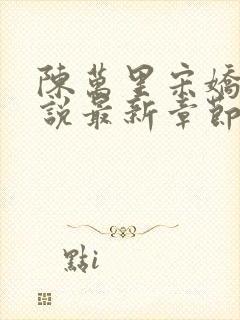 陳萬里宋嬌
說最新章節
點i